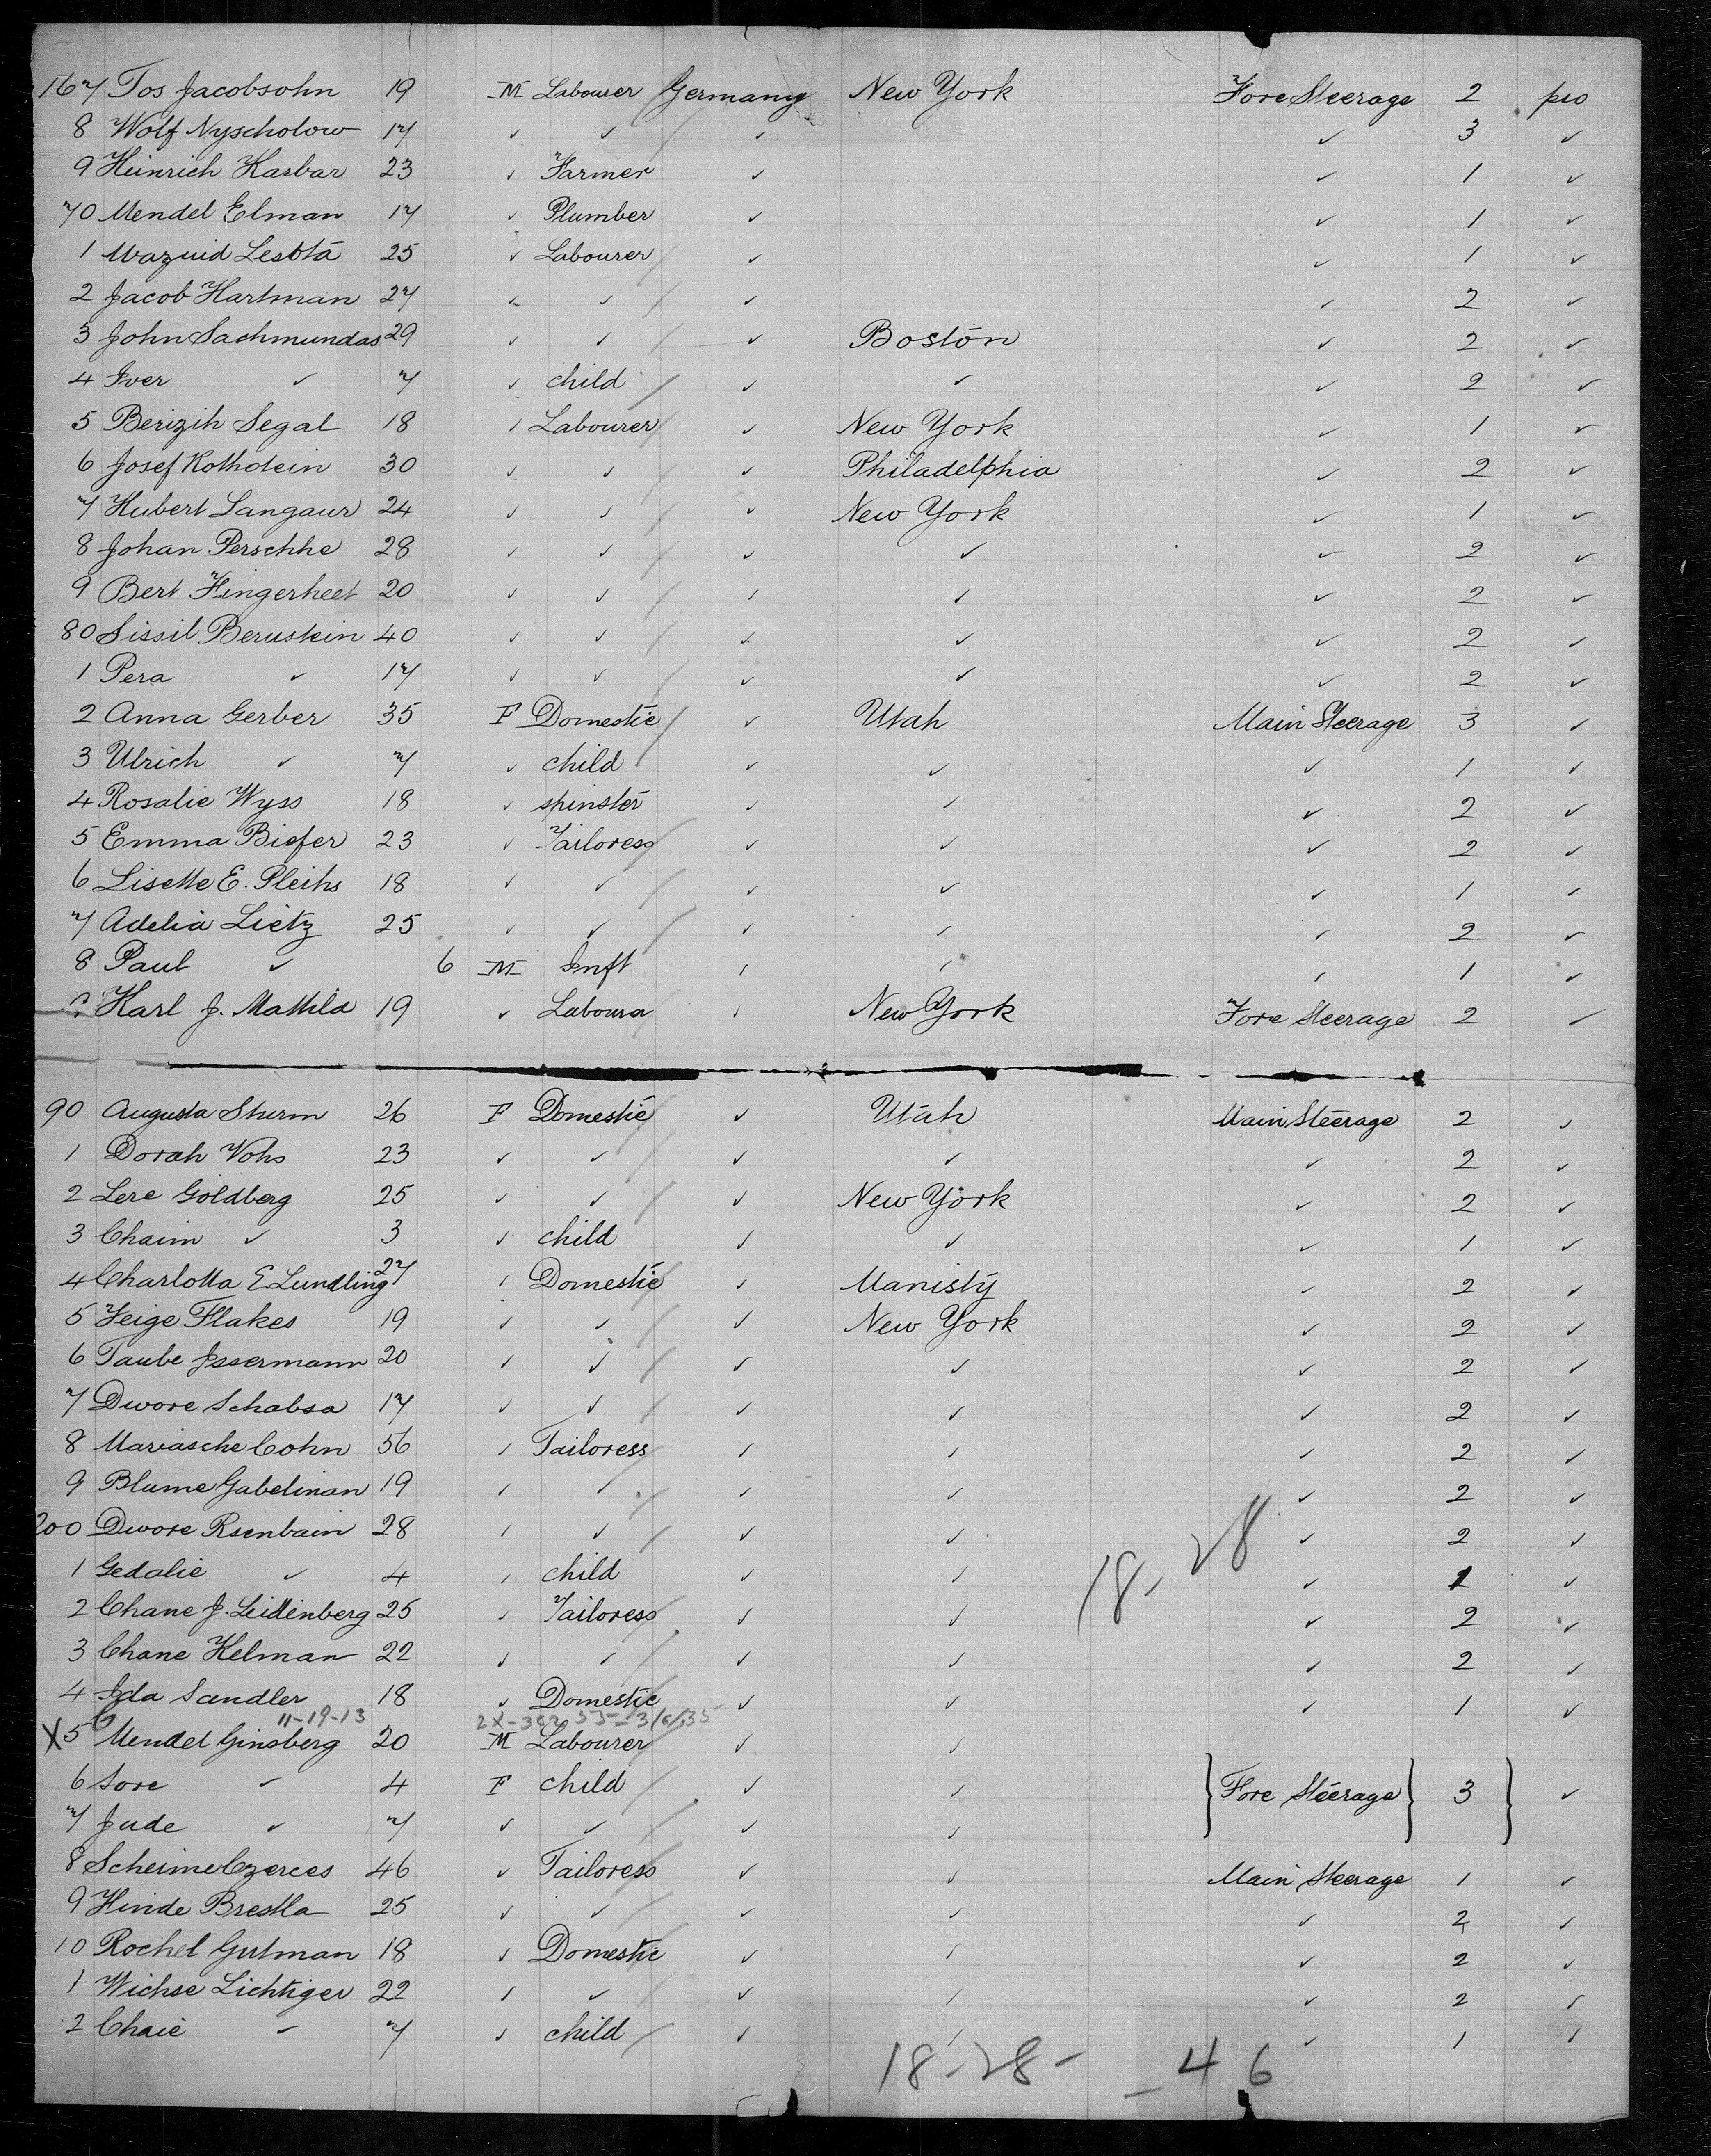 167 Jos Jacobsohn 19 M Labourer Germany New York Fore Steerage 2 pro
8 Wolf Nyscholow 17 ✓ ✓ ✓ ✓ 3 ✓
9 Heinrich Karbar 23 ✓ Farmer ✓ ✓ 1 ✓
70 Mendel Elman 17 ✓ Plumber ✓ ✓ 1 ✓
1 Lesota 25 ✓ Labourer ✓ ✓ 1 ✓
2 Jacob Hartman 27 ✓ ✓ ✓ ✓ 2 ✓
3 John Sachmundas 29 ✓ ✓ ✓ Boston ✓ 2 ✓
4 Iver ✓ 7 ✓ child ✓ ✓ ✓ 2 ✓
5 Berizih Segal 18 ✓ Labourer ✓ New York ✓ 1 ✓
6 Josef Rothdein 30 ✓ ✓ ✓ Philadelphia ✓ 2 ✓
7 Hubert Langaur 24 ✓ ✓ ✓ New York ✓ 1 ✓
8 Johan Perschhe 28 ✓ ✓ ✓ ✓ ✓ 2 ✓
9 Bert Fingerheet 20 ✓ ✓ ✓ ✓ ✓ 2 ✓
80 Sissil Berustein 40 ✓ ✓ ✓ ✓ ✓ 2 ✓
1 Pera ✓ 17 ✓ ✓ ✓ ✓ ✓ 2 ✓
2 Anna Gerber 35 F Domestic ✓ Utah Main Steerage 3 ✓
3 Ulrich ✓ 7 ✓ child ✓ ✓ ✓ 1 ✓
4 Rosalie Wyss 18 ✓ spinster ✓ ✓ ✓ 2 ✓
5 Emma Biefer 23 ✓ Tailoress ✓ ✓ ✓ 2 ✓
6 Lisette E. Pleihs 18 ✓ ✓ ✓ ✓ ✓ 1 ✓
7 Adelia Lietz 25 ✓ ✓ ✓ ✓ ✓ 2 ✓
8 Paul ✓ 6 M Inft ✓ ✓ ✓ 1 ✓
Karl J. Mathild 19 ✓ Labourer ✓ New York Fore Steerage 2 ✓
90 Augusta Sturm 26 F Domestic ✓ Utah Main Steerage 2 ✓
1 Dorah Vohs 23 ✓ ✓ ✓ ✓ ✓ 2 ✓
2 Lere Goldberg 25 ✓ ✓ ✓ New York ✓ 2 ✓
3 Chaim ✓ 3 ✓ child ✓ ✓ ✓ 1 ✓
4 Charlotta E Lundling 27 ✓ Domestic ✓ Manisty ✓ 2 ✓
5 Feige Flakes 19 ✓ ✓ ✓ New York ✓ 2 ✓
6 Taube Issermann 20 ✓ ✓ ✓ ✓ ✓ 2 ✓
7 Dwore Schabsa 17 ✓ ✓ ✓ ✓ ✓ 2 ✓
8 Mariasche Cohn 56 ✓ Tailoress ✓ ✓ ✓ 2 ✓
9 Blume Gabelinan 19 ✓ ✓ ✓ ✓ ✓ 2 ✓
200 Dwore Rsenbain 28 ✓ ✓ ✓ ✓ ✓ 2 ✓
18-28
1 Gedalie ✓ 4 ✓ child ✓ ✓ ✓ 1 ✓
2 Chane J. Leidenberg 25 ✓ Tailoress ✓ ✓ ✓ 2 ✓
3 Chane Kelman 22 ✓ ✓ ✓ ✓ ✓ 2 ✓
4 Ida Sandler 18 ✓ Domestic ✓ ✓ ✓ 1 ✓
11-19-13
X5 Mendel Ginsberg 20 M Labourer ✓ ✓
6 Sore ✓ 4 F child ✓ ✓ Fore Steerage 3 ✓
7 Jude ✓ 7 ✓ ✓ ✓ ✓
8 Scheime Czerces 46 ✓ Tailoress ✓ ✓ Main Steerage 1 ✓
9 Hinde Brestla 25 ✓ ✓ ✓ ✓ 2 ✓
10 Rochel Gutman 18 ✓ Domestic ✓ ✓ ✓ 2 ✓
1 Wichse Lichtiger 22 ✓ ✓ ✓ ✓ ✓ 2 ✓
2 Chaie ✓ 7 ✓ child ✓ ✓ ✓ 1 ✓
18-28- -46